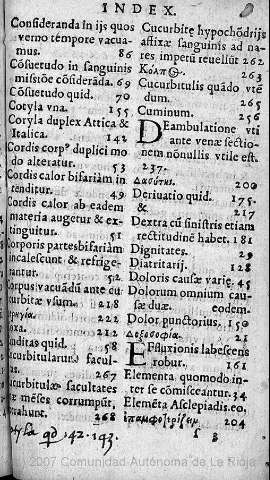 INDEX.
Consideranda in ijs quos
verno tempore vacua-
mus. 86
Cõsuetudo in sanguinis
missiõe cõsiderãda. 69
Cõsuetudo quid. 70
Cotyla vna. 155
Cotyla duplex Attica &
Italica. 142
Cordis corpꝰ duplici mo
do alteratur. 53
Cordis calor bifariàm in
tenditur. 49
Cordis calor ab eadem
materia augetur & ex-
tinguitur. 51
Corporis partes bifariàm
incalescunt & refrige-
rantur. 52
Corpus vacuãdũ ante cu
curbitæ vsum. 218
222
Coxa. 212
quid. 58
Cucurbitularum facul-
tas. 267
Cucurbitulæ facultates
quæ mẽses corrumpũt,
trahunt. 268
142. 143.
Cucurbitę hypochõdrijs
affixæ sanguinis ad na-
res impetũ reuellũt 262
Κόλπος. 263
Cucurbitulis quãdo vtẽ
dum. 265
Cuminum. 256
DEambulatione vti
ante venæ sectio-
nem nõnullis vtile est.
237.
200
Deriuatio quid. 175.
& 217
Dextra cũ sinistris etiam
rectitudinẽ habet. 181
Dignitates. 29
Diatritarij. 128
Doloris causæ varię. 45
Dolorum omnium cau-
sæ duæ. eodem.
Dolor punctorius. 150
21
EFfluxionis labescens
robur. 161
Elementa quomodo in-
ter se cõmisceantur. 34
Elemẽta Asclepiadis. eo.
204
s 8
© 2007 Comunidad Autónoma de La Rioja